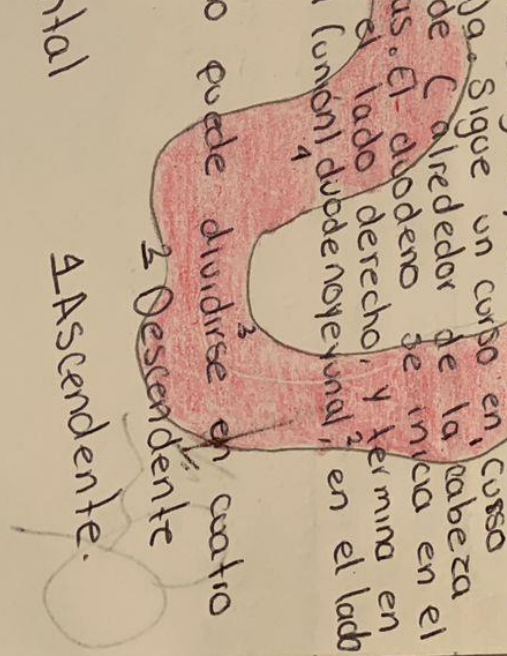 Sigue un curso en curso
de C alrededor de la cabeza
El duodeno se inicia en el
el lado derecho, y termina en
(unión) duodenoyeyunal, en el lado
4
3
2
puede dividirse en cuatro
2 Descendente
1 Ascendente.